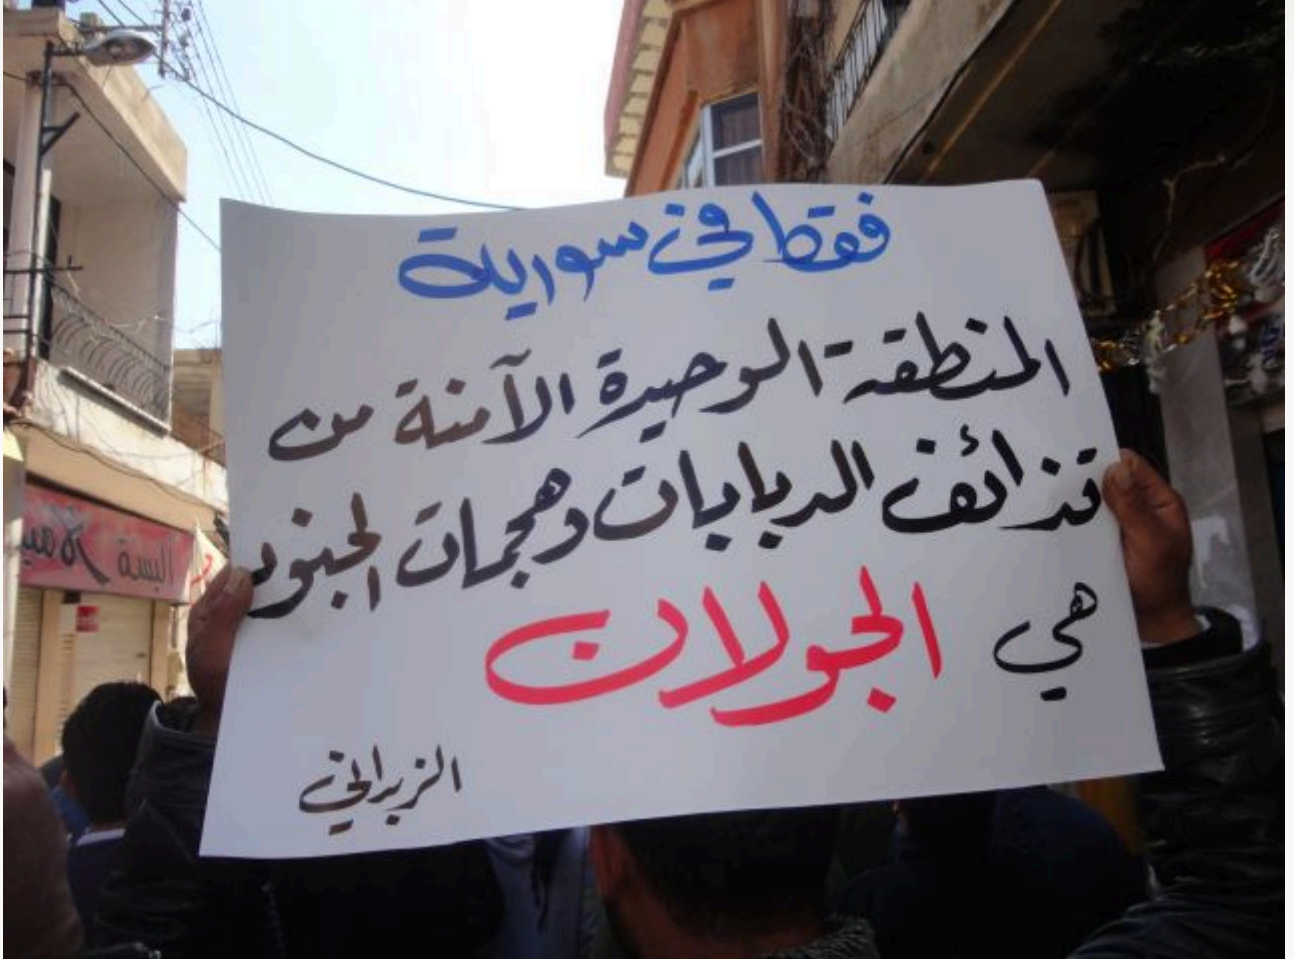 فقط في سورية
المنطقة الوحيدة الآمنة من
قذائف الدبابات وهجمات الجنود
هي الجولان
الزبداني
البسة